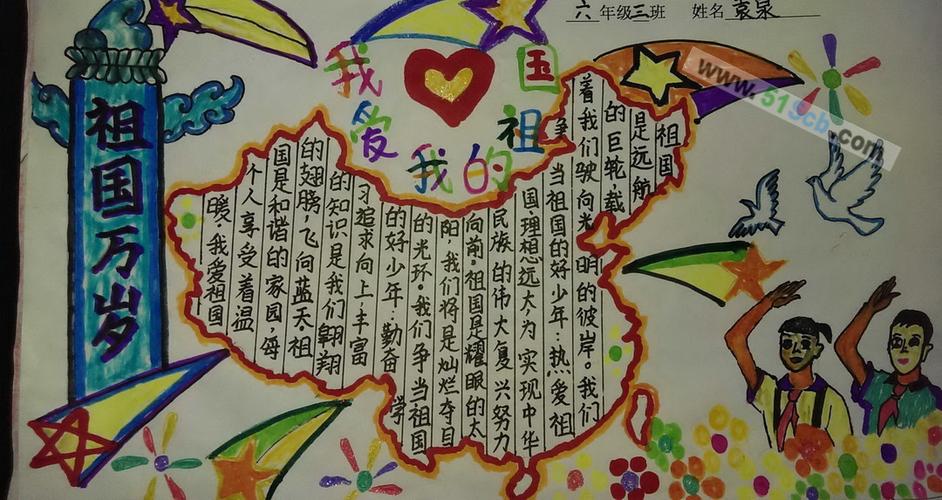 六年级三班 姓名 袁泉
我爱我的祖国
祖国万岁
祖国
是远航
的巨轮，载
着我们驶向光明的彼岸。我们
争当祖国的好少年：热爱祖
国理想远大，为实现中华
民族的伟大复兴努力
向前。祖国是耀眼的太
阳，我们将是灿烂夺目
的光环。我们争当祖国
的好少年：勤奋学
习追求向上丰富
的知识是我们翱翔
的翅膀，飞向蓝天。祖
国是和谐的家园，每
个人享受着温
暖，我爱祖国
www.519cb.com